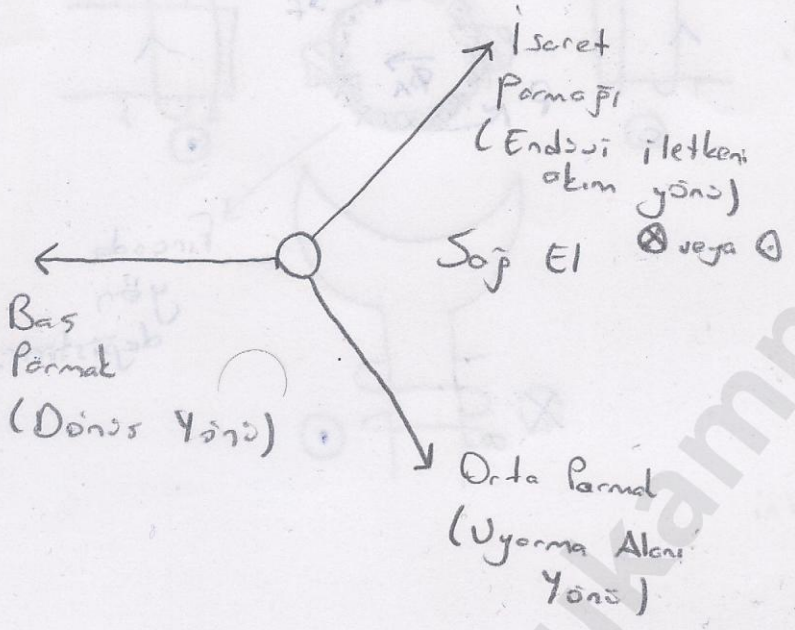 İşaret
Parmağı
(Endüvi iletkeni
akım yönü)
Sağ El ⊗ veya ⊙
Baş
Parmak
(Dönüş Yönü)
Orta Parmak
(Uyarma Alanı
Yönü)